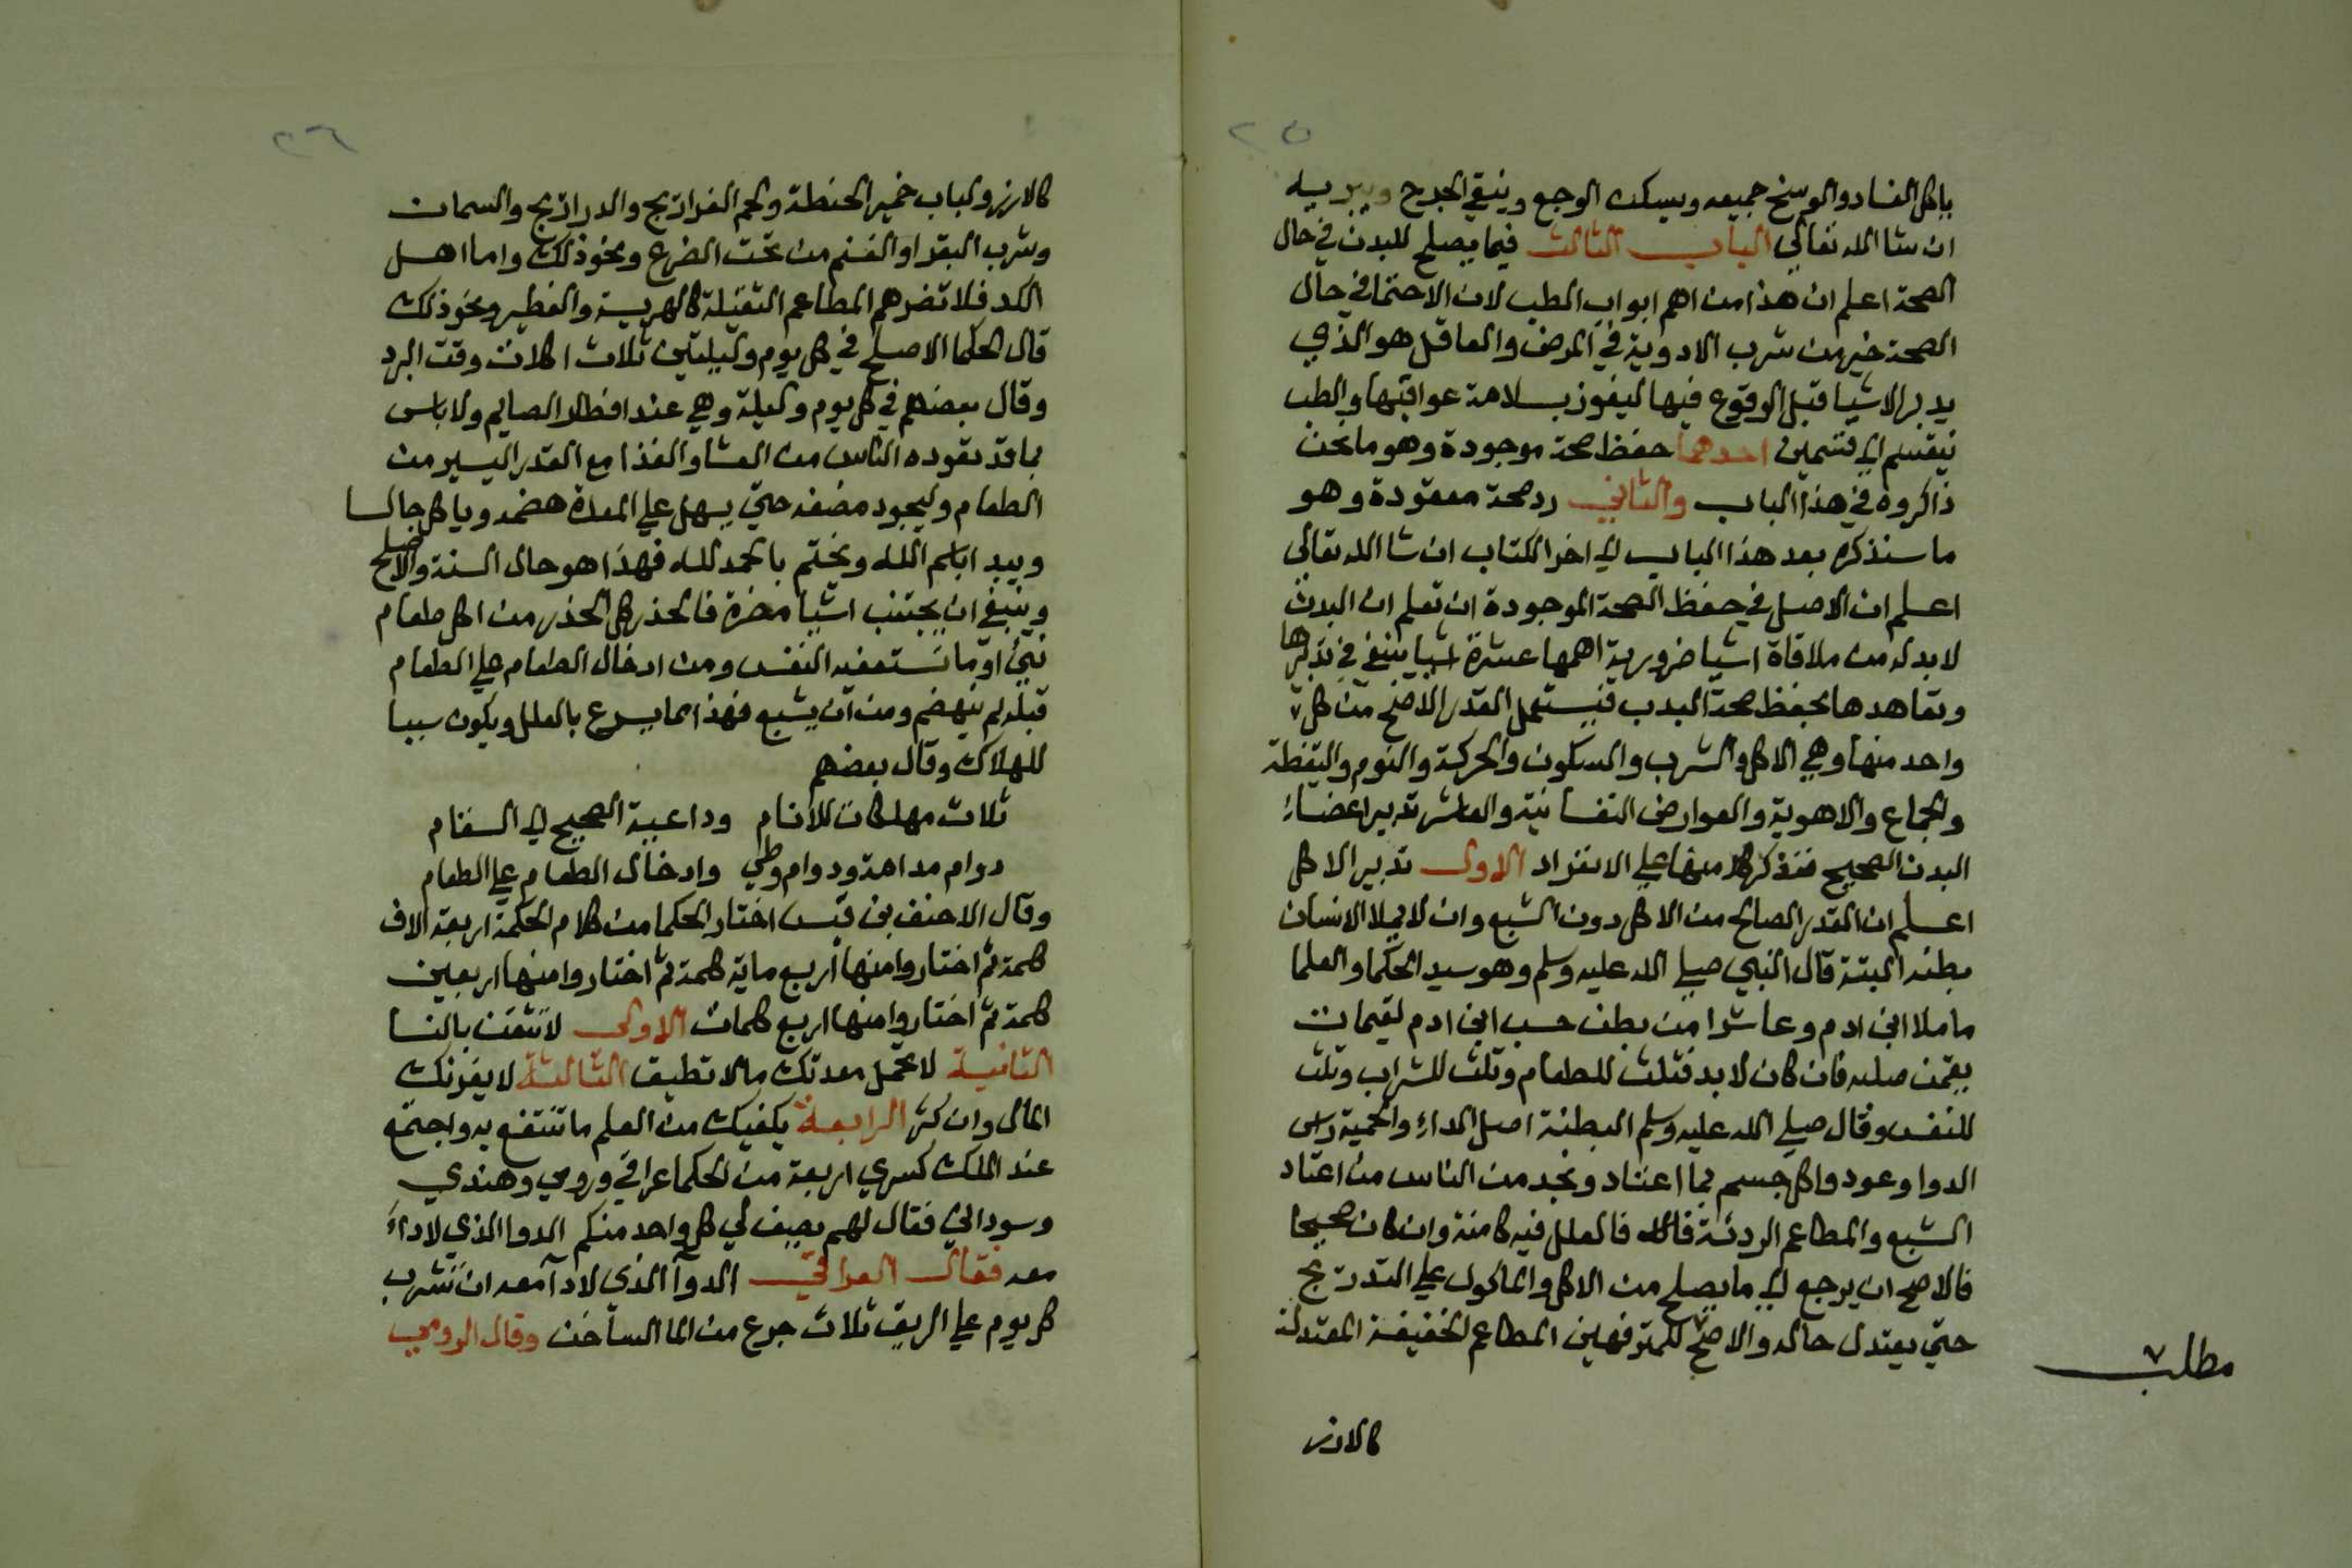 ٢٥
ياكل الفساد والوسخ جميعه ويسكن الوجع وينقي الجرح ويبريه
ان شا الله تعالي الباب الثالث فيما يصلح للبدن في حال
الصحة اعلم ان هذا من اهم ابواب الطب لان الاحتما في حال
الصحة خير من شرب الادوية في المرض والعاقل هو الذي
يدبر الاشيا قبل الوقوع فيها ليفوز بسلامة عواقبها والطب
ينقسم الي قسمين احدهما حفظ صحة موجودة وهو ما نحن
ذاكروه في هذا الباب والثاني رد صحة مفقودة وهو
ما سنذكره بعد هذا الباب الي اخر الكتاب ان شا الله تعالي
اعلم ان الاصل في حفظ الصحة الموجودة ان تعلم ان البدن
لا بد له من ملاقاة اشيا ضرورية اهمها عشرة اشيا ينبغي في تدبرها
وتعاهدها بحفظ صحة البدن فيستعمل القدر الاصح من كل
واحد منها وهي الاكل والشرب والسكون والحركة والنوم واليقظة
والجماع والاهوية والعوارض النفسانية والعاشر تدبير اعضاء
البدن الصحيح فنذكر كلا منها علي الانفراد الاول تدبير الاكل
اعلم ان القدر الصالح من الاكل دون الشبع وان لا يملا الانسان
بطنه البتة قال النبي صلي الله عليه وسلم وهو سيد الحكما والعلما
ما ملا ابن ادم وعا شرا من بطن حسب ابن ادم لقيمات
يقمن صلبه فان كان لا بد فثلث للطعام وثلث للشراب وثلث
للنفس وقال صلي الله عليه وسلم البطنة اصل الداء والحمية راس
الدوا وعودوا كل جسم بما اعتاد ونجد من الناس من اعتاد
الشبع والمطاعم الردئة فالعلل فيه كامنة وان كان صحيحا
فالاصح ان يرجع الي ما يصلح من الاكل والماكول علي التدريج
حتي يعتدل حاله والاصح للمترفهين المطاعم الخفيفة المعتدلة
مطلب
كالارز
٢٦
كالارز ولباب خمير الحنطة ولحم الفراريج والدراريج والسمان
وشرب البقر او الغنم من تحت الضرع ونحو ذلك واما اهل
الكد فلا تضرهم المطاعم الثقيلة كالهريسة والفطير ونحو ذلك
قال الحكما الاصلح في كل يوم وليلتين ثلاث اكلات وقت البرد
وقال بعضهم في كل يوم وليلة وهي عند افطار الصايم ولا باس
بما قد تعوده الناس من العشا والغذا مع القدر اليسير من
الطعام وليجود مضغه حتي يسهل علي المعدة هضمه وياكل جالسا
ويبدا باسم الله ويختم بالحمد لله فهذا هو حال السنة والاصلح
وينبغي ان يجتنب اشيا مضرة فالحذر كل الحذر من اكل طعام
نيئ او ما تستعفيه النفس ومن ادخال الطعام علي الطعام
قبله لم ينهضم ومن ان يشبع فهذا مما يسرع بالعلل ويكون سببا
للهلاك وقال بعضهم
ثلاث مهلكات للانام وداعية الصحيح الي السقام
دوام مدامة ودوام وطي وادخال الطعام علي الطعام
وقال الاحنف بن قيس اختار الحكما من كلام الحكمة اربعة الاف
كلمة ثم اختاروا منها اربع ماية كلمة ثم اختاروا منها اربعين
كلمة ثم اختاروا منها اربع كلمات الاولي لا تثقن بالنسا
الثانية لا تحمل معدتك مالا تطيق الثالثة لا يغرنك
المال وان كثر الرابعة يكفيك من العلم ما تنتفع به واجتمع
عند الملك كسري اربعة من الحكما عراقي ورومي وهندي
وسوداني فقال لهم يصف لي كل واحد منكم الدوا الذي لا داء
معه فقال العراقي الدوآ الذي لا دآ معه ان تشرب
كل يوم علي الريق ثلاث جرع من الما الساخن وقال الرومي